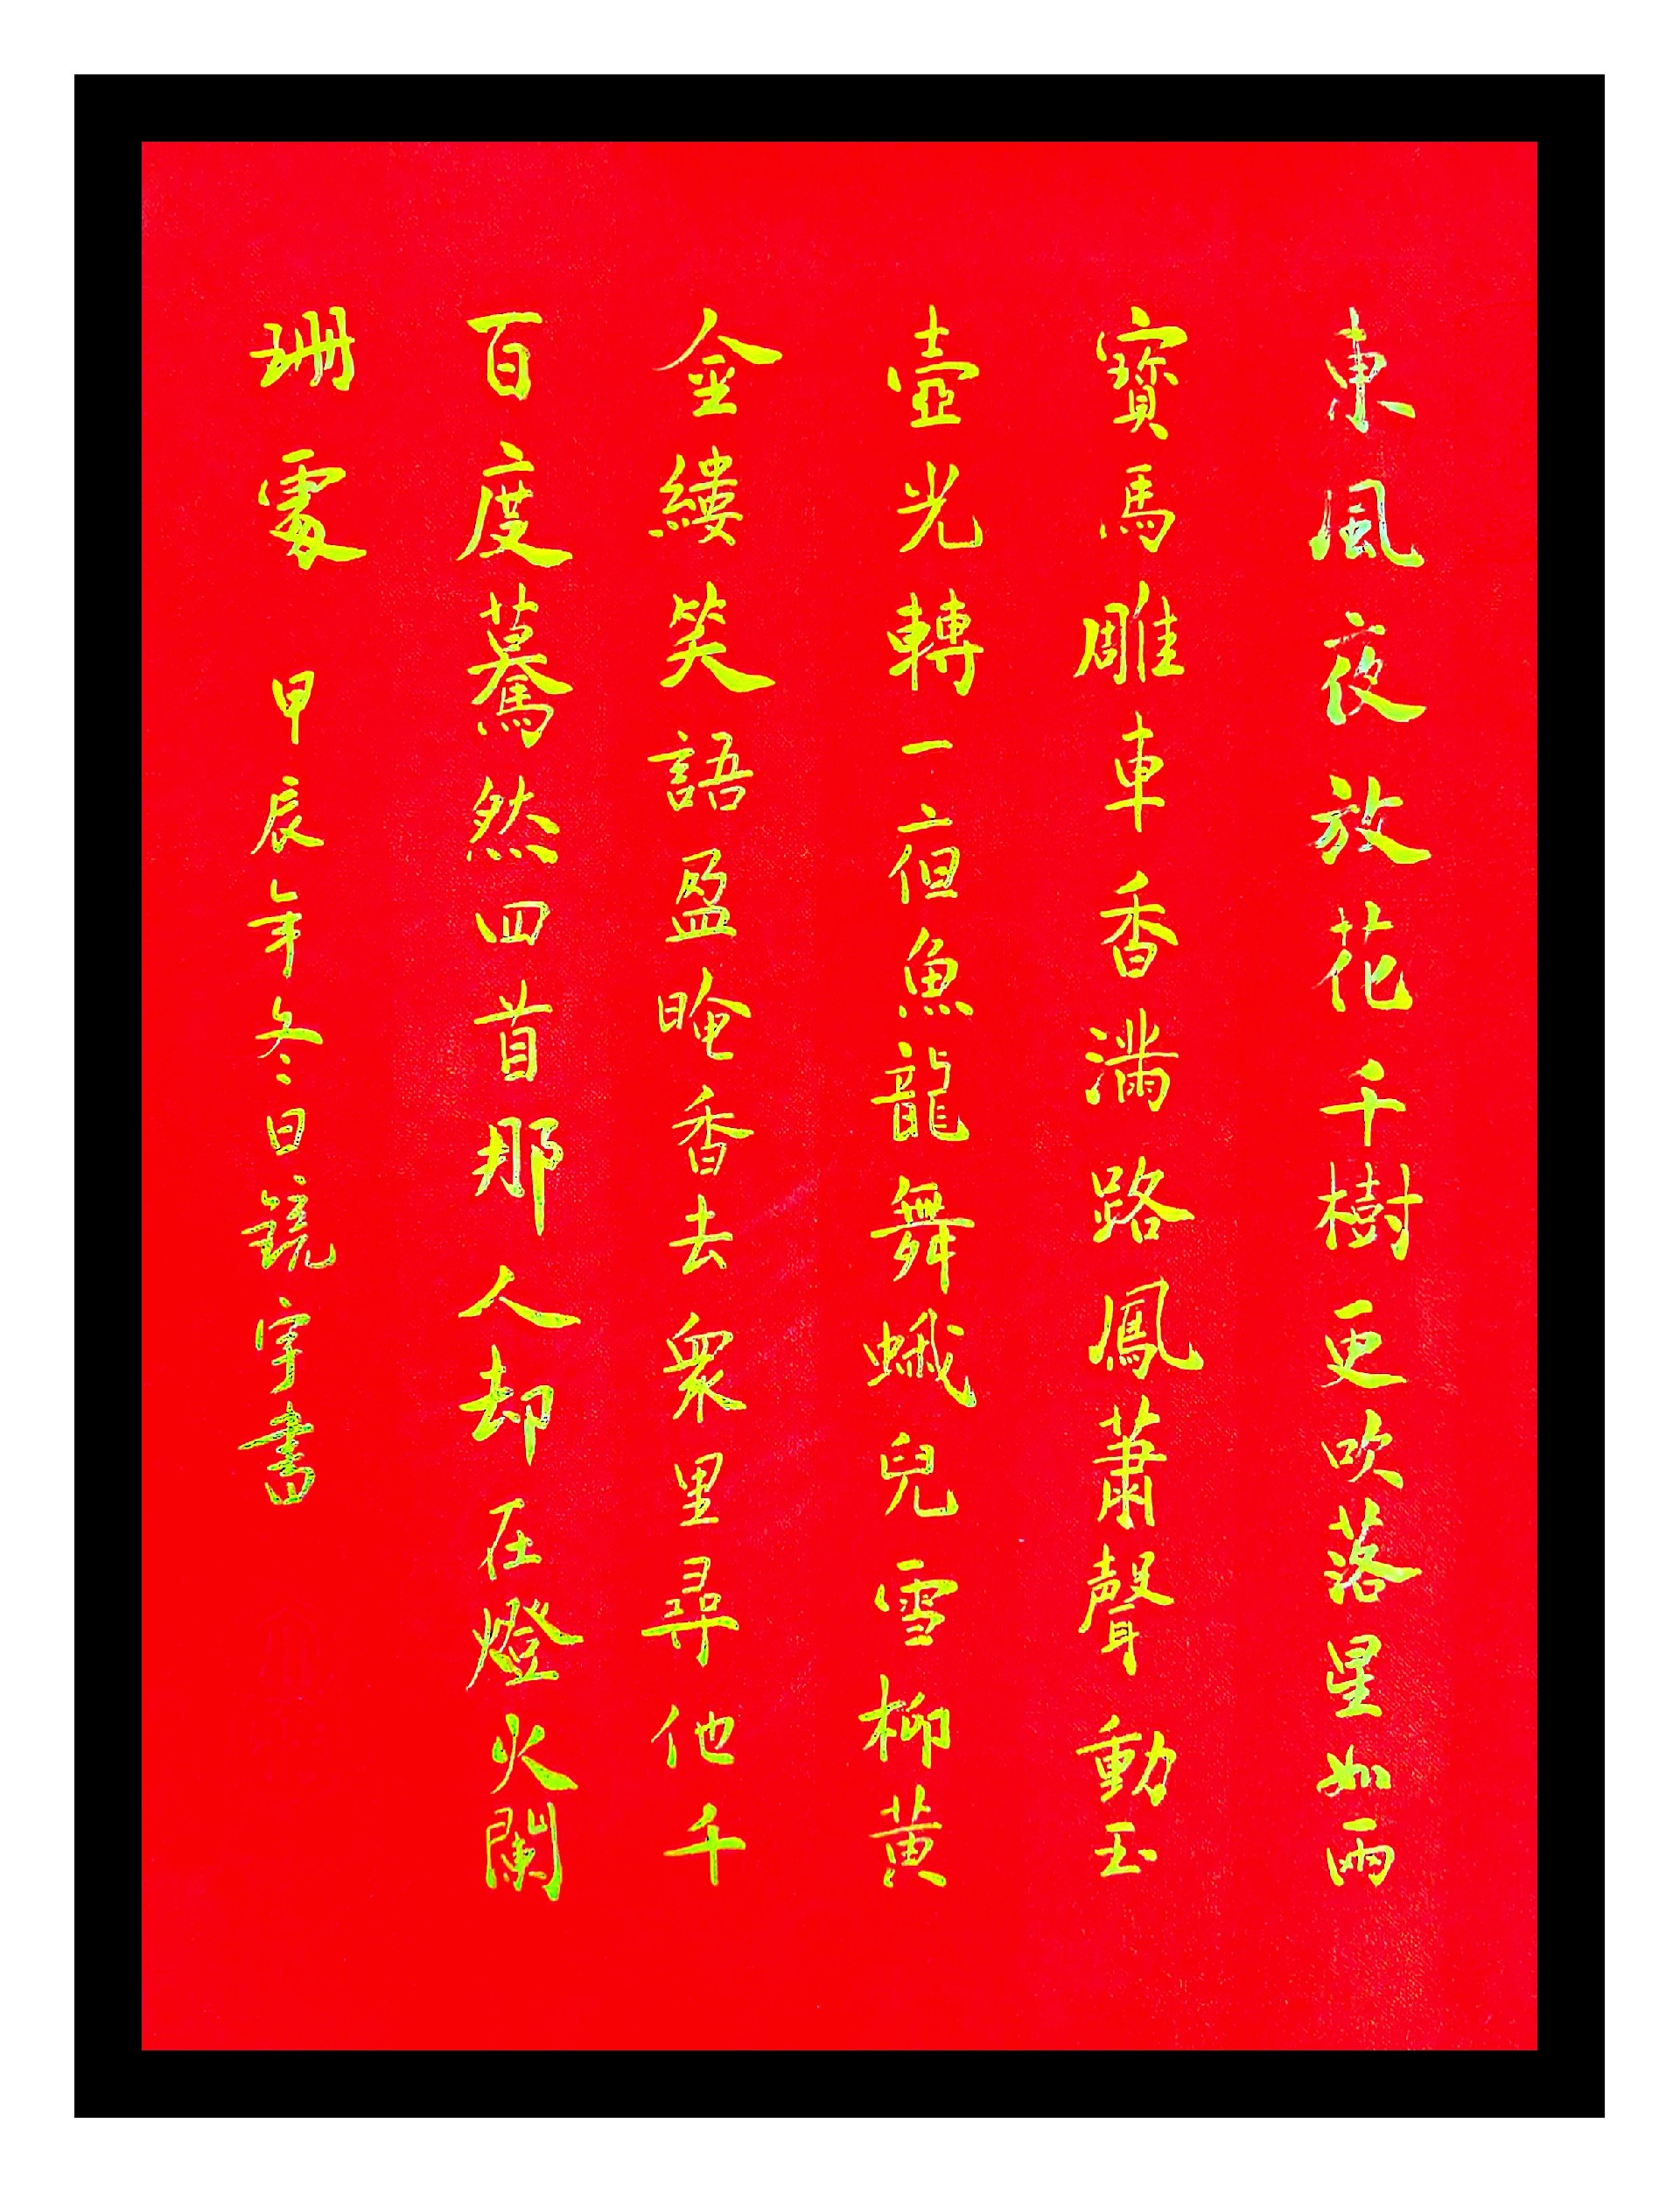 東風夜放花千樹更吹落星如雨
寶馬雕車香滿路鳳蕭聲動玉
壺光轉一亱魚龍舞蛾兒雪柳黃
金縷笑語盈晻香去衆里尋他千
百度驀然回首那人却在燈火闌
珊處 甲辰年冬日鏡宇書